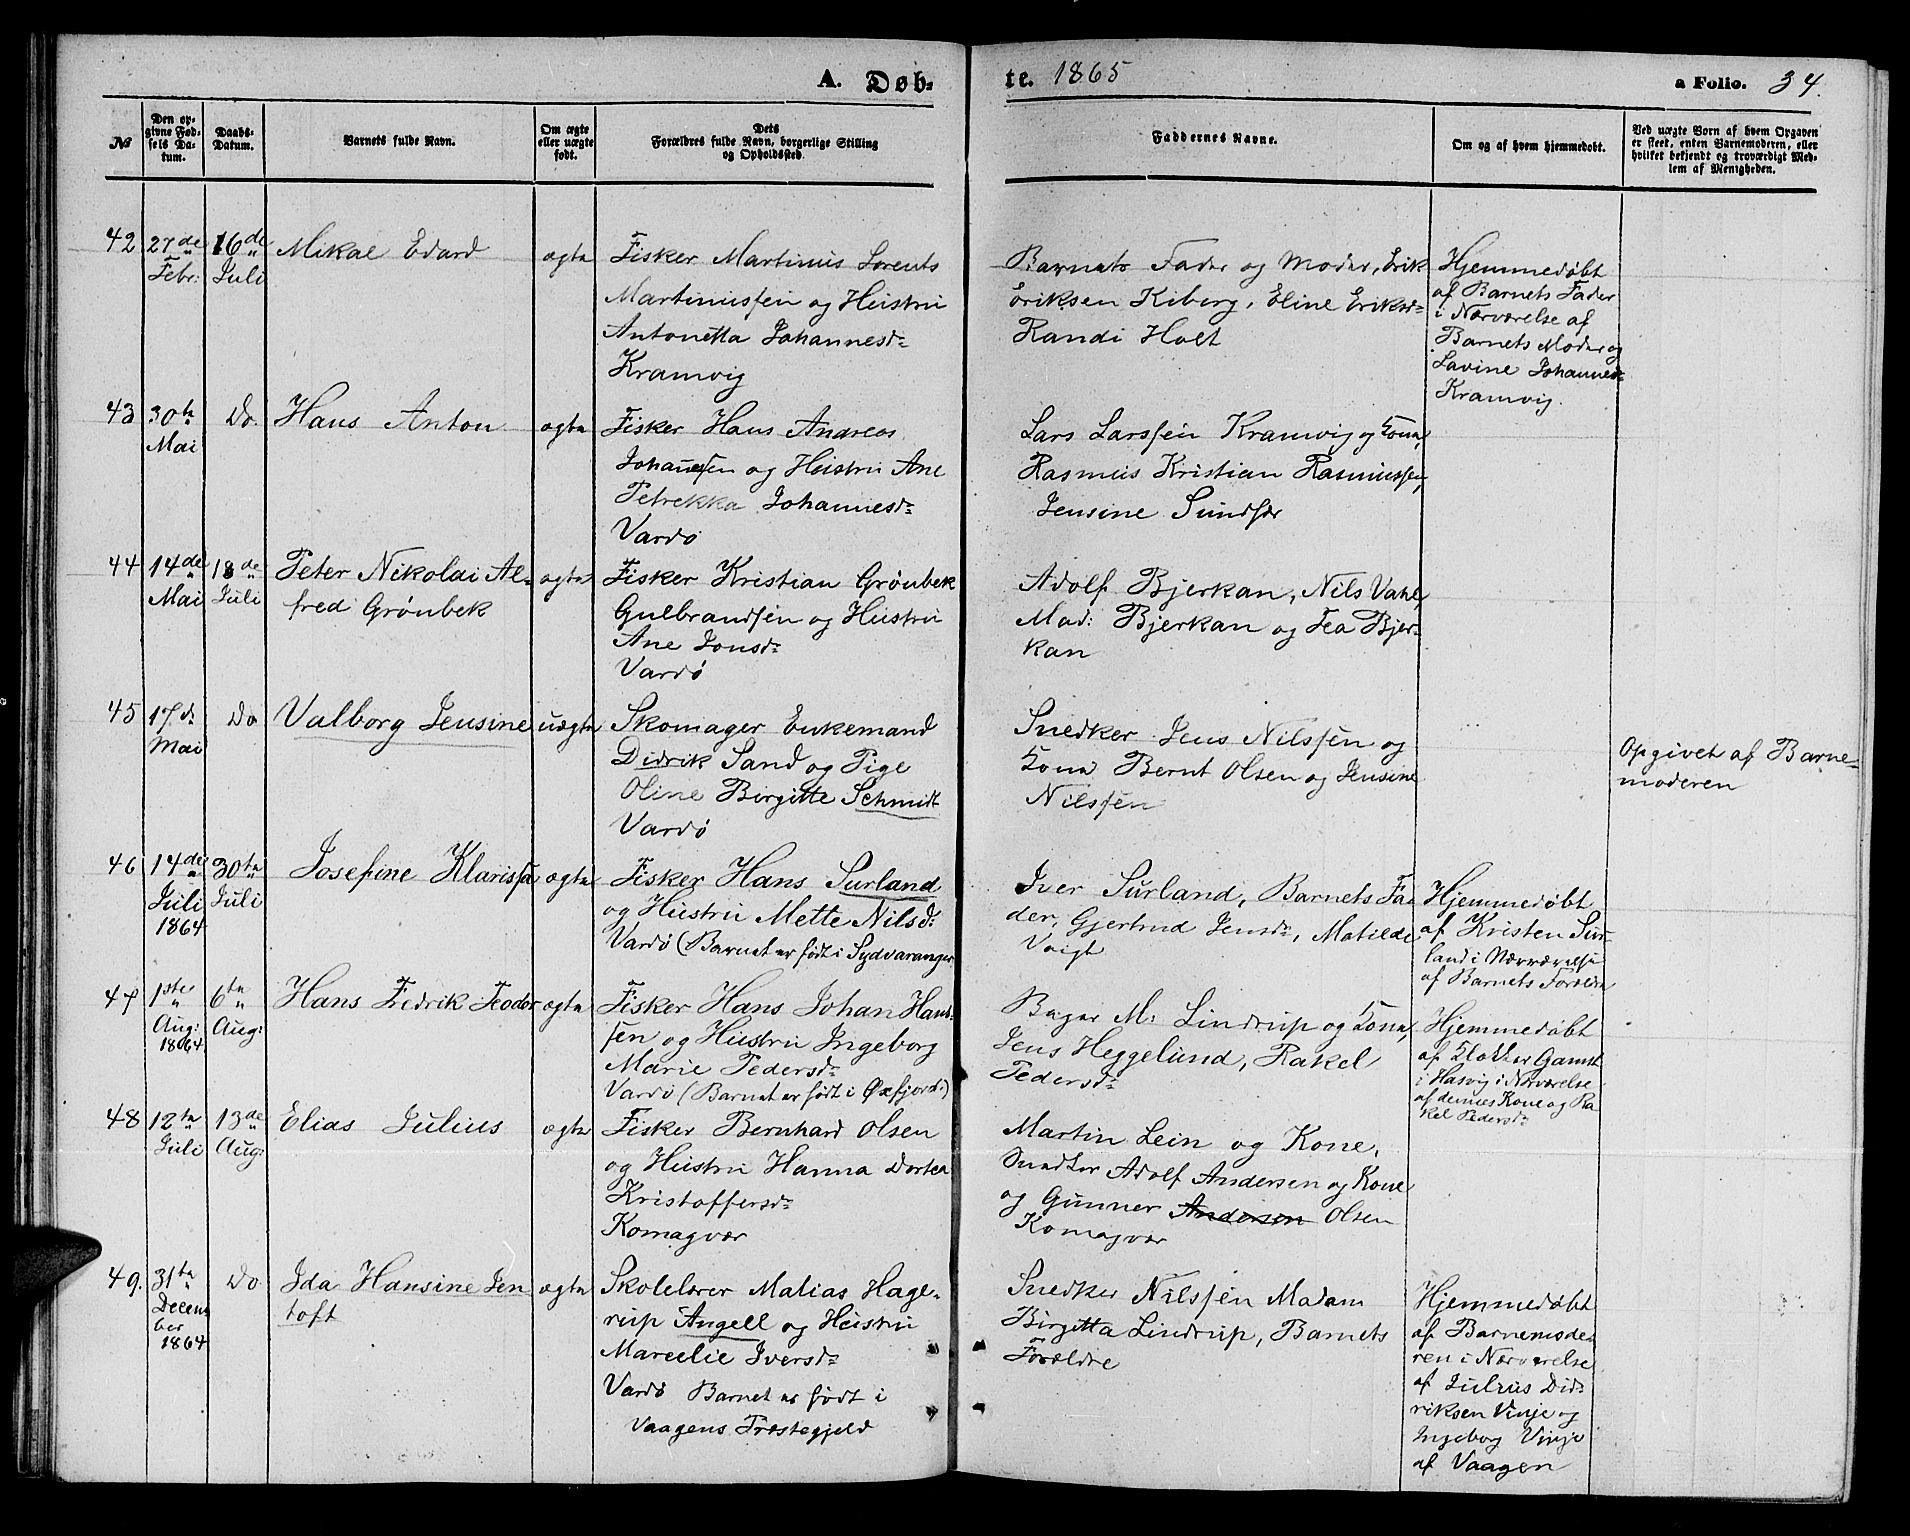 A. Døb-
te. 1865
a Folio. 34.
№
Den op-
givne Fød-
sels Da-
tum.
Daabs-
Datum.
Barnets fulde Navn.
Om ægte
eller uægte
født.
Dets
Forældres fulde Navn, borgerlige Stilling
og Opholdssted.
Faddernes Navne.
Om og af hvem hjemmedøbt.
Ved uægte Børn af hvem Opgaven
er skeet, enten Barnemoderen, eller
hvilket bekjendt og troværdigt Med-
lem af Menigheden.
42
27de
Febr:
16de
Juli
Mikal Edard
ægte
Fisker Martinus Lorents
Martinussen og Hustru
Antonetta Johannesd=
Kramvig
Barnets Fader og Moder, Erik
Eriksen Kiberg, Eline Eriksd=
Randi Holt
Hjemmedøbt
af Barnets Fader
i Nærværelse af
Barnets Moder og
Lavine Johannesd=
Kramvig.
43
30te
Mai
Do.
Hans Anton
ægte
Fisker Hans Andreas
Johansen og Hustru Ane
Petrekka Johannesd=
Vardø
Lars Larssen Kramvig og Kona,
Rasmus Kristian Rasmussen,
Jensine Sundfær
44
14de
Mai
18de
Juli
Peter Nikolai Al-
fred Grønbek
ægte
Fisker Kristian Grønbek
Gulbrandsen og Hustru
Ane Jonsd=
Vardø
Adolf Bjerkan, Nils Vahl,
Mad: Bjerkan og Tea Bjer-
kan
45
17de
Mai
Do
Valborg Jensine
uægte
Skomager Enkemand
Didrik Sand og Pige
Oline Birgitte Schmidt
Vardø
Snedker Jens Nilssen og
Kona Bernt Olsen og Jensine
Nilssen
Opgivet af Barne-
moderen
46
14de
Juli
1864
30te
Juli
Josefine Klarissa
ægte
Fisker Hans Surland
og Hustru Mette Nilsd:
Vardø (Barnet er født i Sydvaranger
Iver Surland, Barnets Fa-
der, Gjertrud Jensd=, Matilde
Voigt
Hjemmedøbt
af Kristen Sur-
land i Nærværelse
af Barnets Forældre
47
1ste
Aug:
1864
6te
Aug:
Hans Fedrik Teodor
ægte
Fisker Hans Johan Han-
sen og Hustru Ingeborg
Marie Pedersd=
Vardø (Barnet er født i Øxfjord.)
Bager M: Lindrup og Kona,
Jens Heggelund, Rakel
Pedersd=
Hjemmedøbt
af Klokker Gamst
i Hasvig i Nærværelse
af dennes Kone og Ra
kel Pedersd=
48
12te
Juli
13de
Aug:
Elias Julius
ægte
Fisker Bernhard Olsen
og Hustru Hanna Dortea
Kristoffersd=
Komagvær
Martin Lein og Kone,
Snedker Adolf Andersen og Kone
og Gunner Andersen Olsen
Komagvær
49.
31te
Decem
ber
1864
Do
Ida Hansine Jen
toft
ægte
Skolelærer Matias Hage-
rup Angell og Hustru
Marcelie Iversd=
Vardø Barnet er født i
Vaagens Præstegjeld
Snedker Nilssen Madam
Birgitta Lindrup, Barnets
Forældre
Hjemmedøbt
af Barnemode-
ren i Nærværelse
af Julius Did-
riksen Vinje og
Ingeborg Vinje
af Vaagen